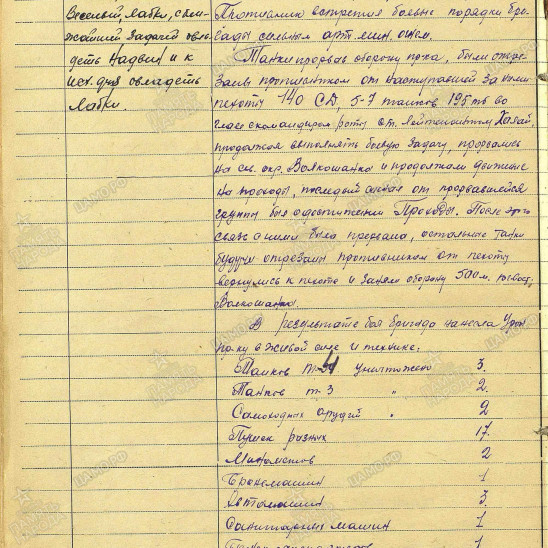 Веселый, Лабки, с бли-
жайшей задачей овла-
деть Надвин и к
исх. дня овладеть
Лабки.
Противник встретил боевые порядки бри-
гады сильным арт. мин. огнем.
Танки прорвав оборону пр-ка, были отре-
заны противником от наступавшей за ними
пехоты 140 СД, 5-7 танков 195 тб во
главе с командиром роты ст. лейтенантом
продолжая выполнять боевую задачу, прорвались
на окр. Волкошанка и продолжали движение
на Проходы, последний сигнал от прорвавшейся
группы был о достижении Проходы. После этого
связь с ними была прервана, остальные танки
будучи отрезаны противником от пехоты
вернулись к пехоте и заняли оборону 500 м.
Волкошанка.
В результате боя бригада нанесла урон
пр-ку в живой силе и технике:
Танков уничтожено 3.
Танков т-3 " 2.
Самоходных орудий " 2
Пушек разных 17.
Минометов 2
Бронемашин 1
Автомашин 3
Санитарных машин 1
1